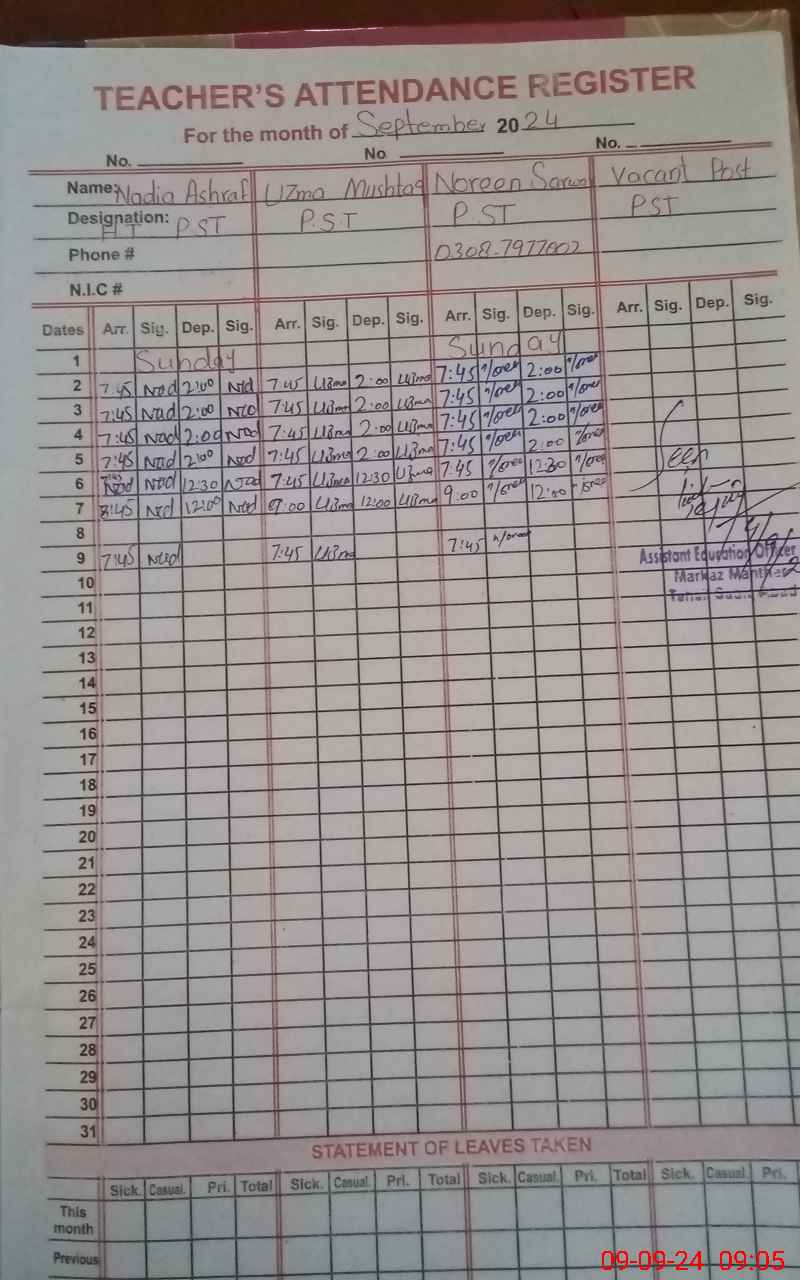 TEACHER'S ATTENDANCE REGISTER
For the month of September 2024
No. No No.
Name: Nadia Ashraf Uzma Mushtaq Noreen Sarwa Vacant Post
Designation: H.T P.ST P.S.T P ST PST
Phone # 0308-7977002
N.I.C #
Dates Arr. Sig. Dep. Sig. Arr. Sig. Dep. Sig. Arr. Sig. Dep. Sig. Arr. Sig. Dep. Sig.
1 Sunday Sunday
2 7:45 Nad 2:00 Nad 7:45 Uzma 2:00 Uzma 7:45 Noreen 2:00 Noreen
3 7:45 Nad 2:00 Nad 7:45 Uzma 2:00 Uzma 7:45 Noreen 2:00 Noreen
4 7:45 Nad 2:00 Nad 7:45 Uzma 2:00 Uzma 7:45 Noreen 2:00 Noreen
5 7:45 Nad 2:00 Nad 7:45 Uzma 2:00 Uzma 7:45 Noreen 2:00 Noreen
6 7:45 Nad Nad 12:30 Nad 7:45 Uzma 12:30 Uzma 7:45 Noreen 12:30 Noreen
7 8:45 Nad 12:00 Nad 9:00 Uzma 12:00 Uzma 9:00 Noreen 12:00 Noreen
8
9 7:45 Nad 7:45 Uzma 7:45 Noreen
Assistant Education Officer
10
Markaz
11
12
13
14
15
16
17
18
19
20
21
22
23
24
25
26
27
28
29
30
31
STATEMENT OF LEAVES TAKEN
Sick. Casual. Pri. Total Sick. Casual. Pri. Total Sick. Casual. Pri. Total Sick. Casual. Pri.
This
month
Previous
09-09-24 09:05